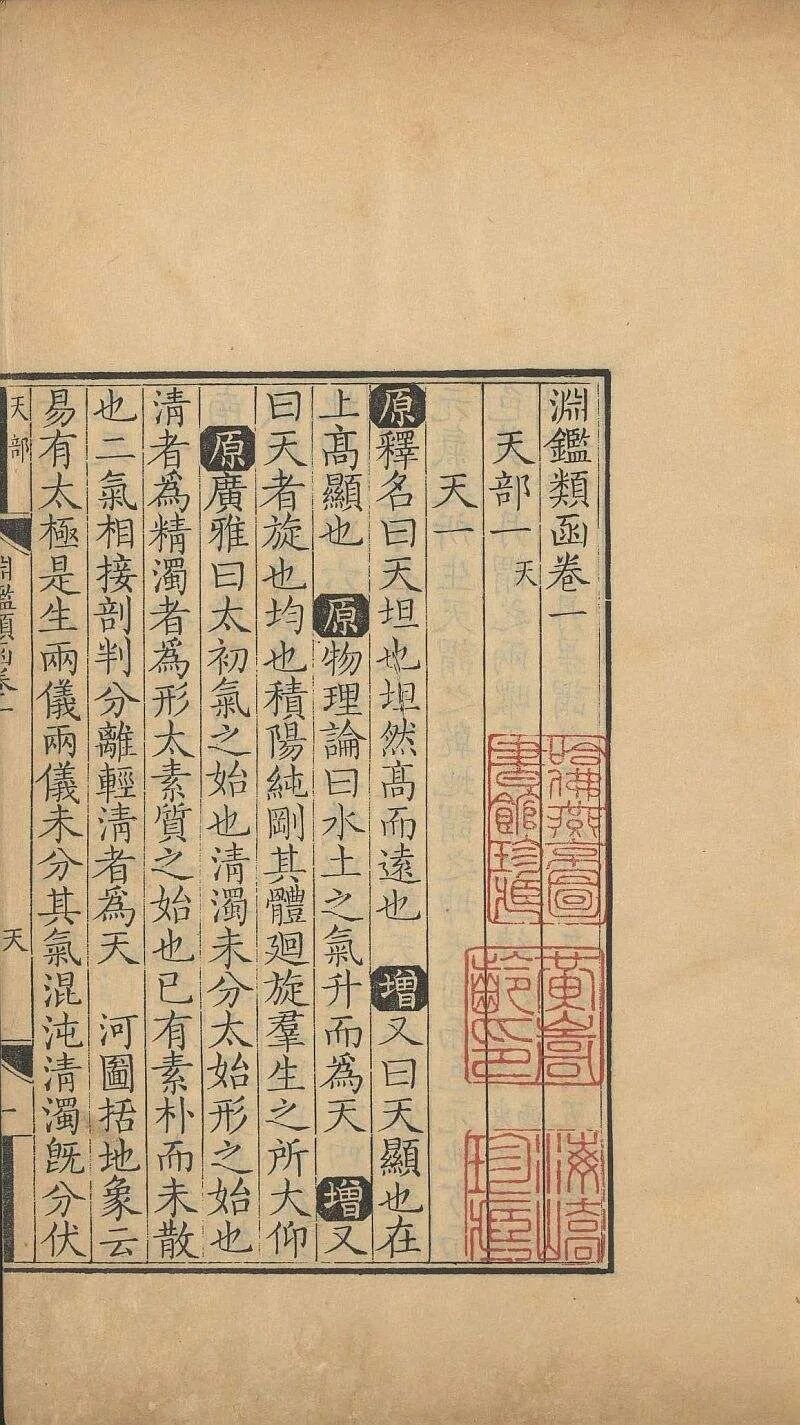 淵鑑類函卷一
天部一 天
天一
原釋名曰天坦也坦然高而遠也 增又曰天顯也在
上高顯也 原物理論曰水土之氣升而為天 增又
曰天者旋也均也積陽純剛其體迴旋羣生之所大仰
原廣雅曰太初氣之始也清濁未分太始形之始也
清者為精濁者為形太素質之始也已有素朴而未散
也二氣相接剖判分離輕清者為天 河圖括地象云
易有太極是生兩儀兩儀未分其氣混沌清濁既分伏
天部
淵鑑類函卷一
天
一
哈佛燕京圖
書館珍藏
黃嵩
齡印
海嶠
珍藏